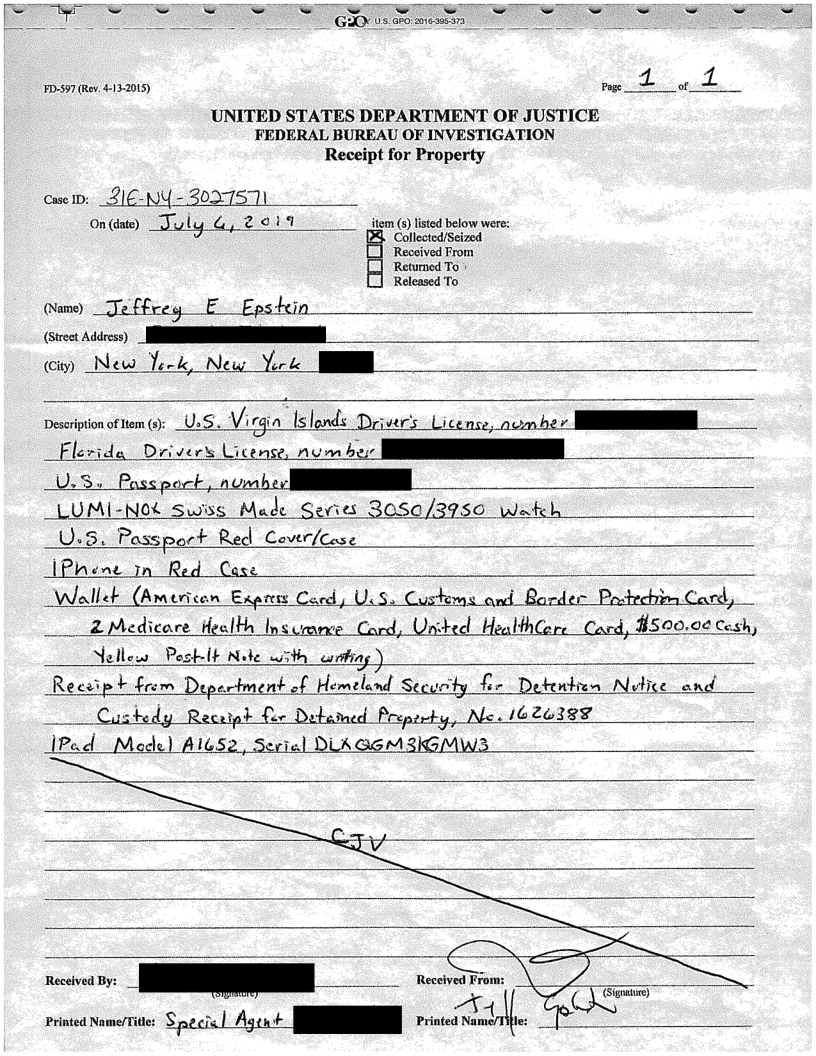 GPO U.S. GPO: 2016-395-373
FD-597 (Rev. 4-13-2015)
Page 1 of 1
UNITED STATES DEPARTMENT OF JUSTICE
FEDERAL BUREAU OF INVESTIGATION
Receipt for Property
Case ID: 31E-NY-3027571
On (date) July 6, 2019
item (s) listed below were:
Collected/Seized
Received From
Returned To
Released To
(Name) Jeffrey E Epstein
(Street Address)
(City) New York, New York
Description of Item (s): U.S. Virgin Islands Driver's License, number
Florida Driver's License, number
U.S. Passport, number
LUMI-NOX Swiss Made Series 3050/3950 Watch
U.S. Passport Red Cover/Case
IPhone in Red Case
Wallet (American Express Card, U.S. Customs and Border Protection Card,
2 Medicare Health Insurance Card, United HealthCare Card, $500.00 Cash,
Yellow Post-It Note with writing)
Receipt from Department of Homeland Security for Detention Notice and
Custody Receipt for Detained Property, No. 1626388
IPad Model A1652, Serial DLXQGM3KGMW3
CJV
Received By:
(Signature)
Received From:
(Signature)
Printed Name/Title: Special Agent
Printed Name/Title: